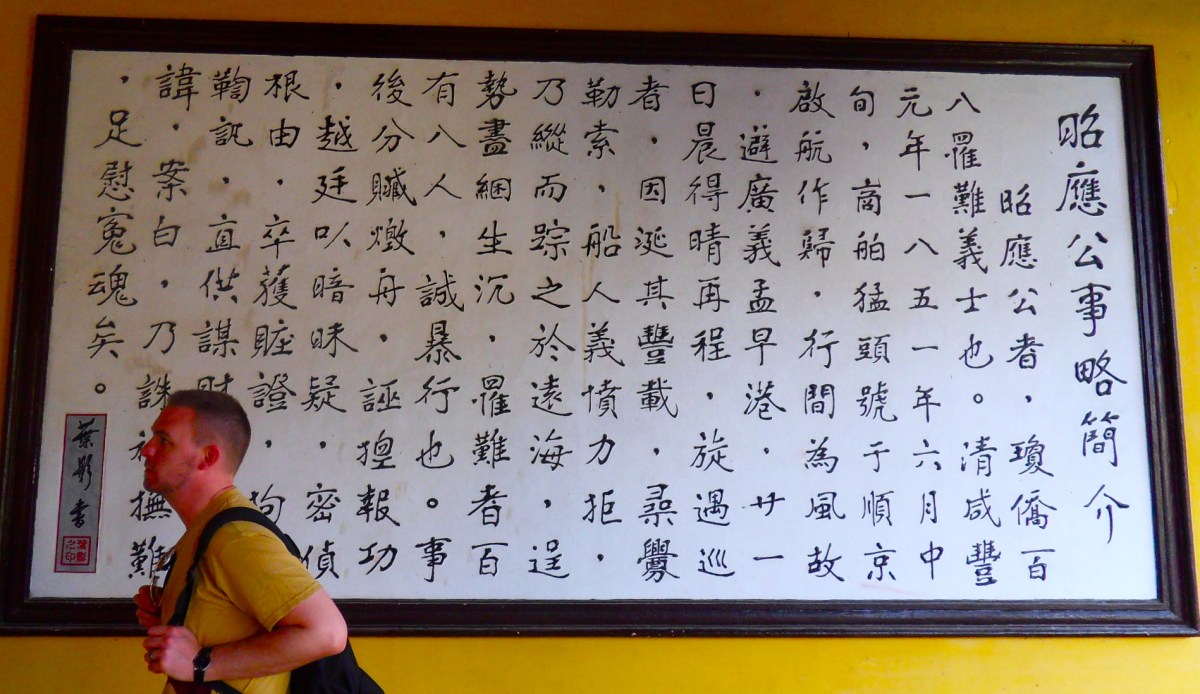 昭應公事略簡介
昭應公者,瓊僑百
八罹難義士也。清咸豐
元年一八五一年六月中
旬,商舶猛頭號于順京
啟航作歸,行間為風故
,避廣義孟早港,廿一
日晨得晴再程,旋遇巡
者,因涎其豐載,尋釁
勒索,船人義憤力拒,
乃縱而踪之於遠海,逞
勢盡綑生沉,罹難者百
有八人,誠暴行也。事
後分贓燬舟,誣捏報功
,越廷以暗昧疑,密偵
根由,卒獲賍證,拘
鞫訊,直供謀財
諱,案白,乃誅撫難
,足慰寃魂矣。
葉書